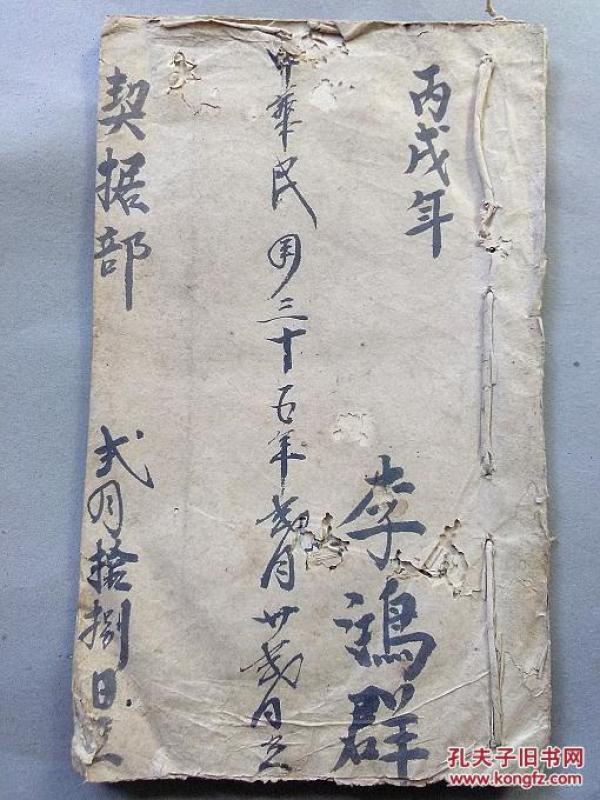 丙戌年
李鴻群
中華民国三十五年貳月廿貳日立
契据部
弍月拾捌日立
孔夫子旧书网
www.kongfz.com